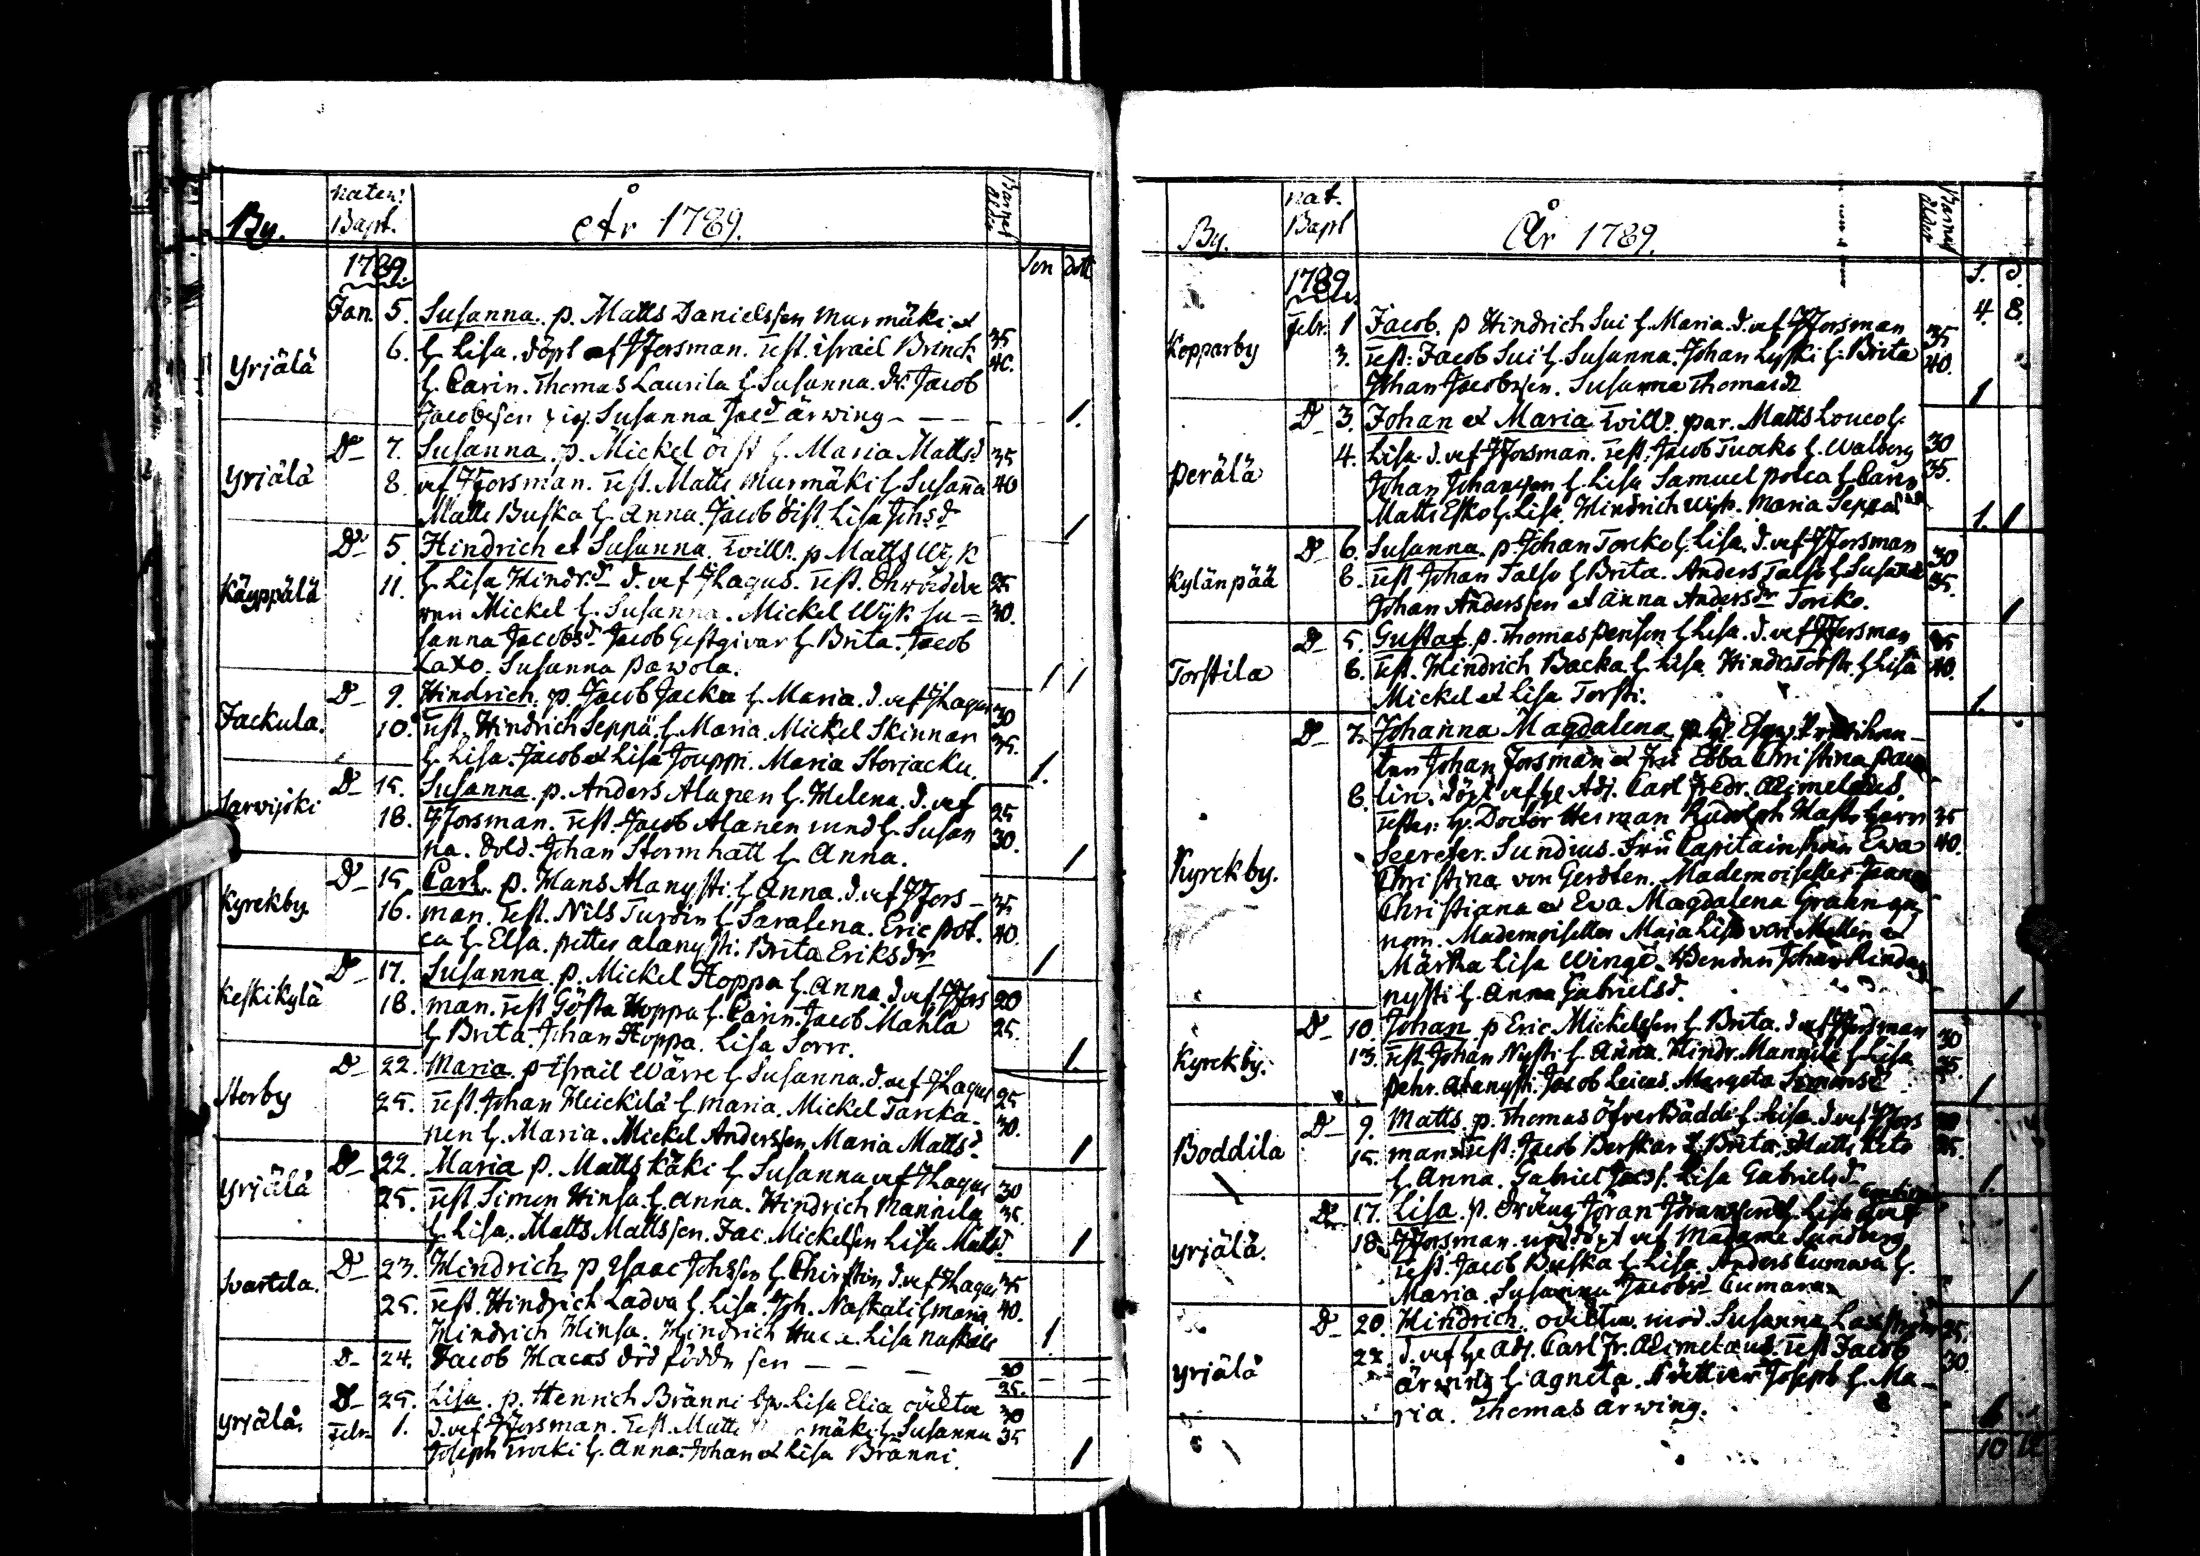 By.
naten:
Bapt.
År 1789.
Barnets
ålder
1789.
Son
dott
Yrjälä
Jan. 5. Susanna. p. Matts Danielssen Murmäki et
6. h. Lisa. döpt af JForsman. Test. Israel Brinck 35
h. Carin. Thomas Laurila h. Susanna. Dr. Jacob 40.
Jacobssen Susanna Jacd ärwing - - - 1.
Yrjälä
D- 7. Susanna. p. Mickel öist h. Maria Mattsd 35
8. af JForsman. Test. Matts Murmäki h. Susanna 40
Matts Buska h. Anna. Jacob öist Lisa Johsd 1
Käyppälä
Do 5. Hindrich et Susanna. Twill. p. Matts Wyk
11. h. Lisa Hindr.d D. af JLagus. Test. 25
Mickel h. Susanna. Mickel Wyk. Su= 30.
sanna Jacobsd Jacob Gestgivar h. Brita. Jacob
Laxo. Susanna Pawola. 1 1
Jackula.
D- 9. Hindrich. p. Jacob Jacka h. Maria. D. af JLagus 30
10. Test. Hindrich Seppä. h. Maria. Mickel Skinnar 35.
h. Lisa. Jacob et Lisa Jouppi. Maria Storjacku. 1.
Sarvijoki
D- 15. Susanna. p. Anders Alanen h. Helena. D. af 25
18. JForsman. Test. Jacob Alanen h. Susan 30.
na. Johan Stormhatt h. Anna. 1
Kyrckby.
D- 15. Carl. p. Hans Alanysti. h. Anna. D. af JFors- 35
16. man. Test. Nils Turdin h. Saralena. Eric Pot. 40.
ca h. Elsa. Petter Alanysti. Brita Eriksdr 1
Keskikylä
D- 17. Susanna p. Mickel Hoppa h. Anna. D. af JFors 20
18. man. Test Gösta Hoppa h. Carin. Jacob Mahla 25.
h. Brita. Johan Hoppa. Lisa Sorri. 1.
Storby
D- 22. Maria. p. Israil Wärre h. Susanna. D. af JLagus 25
25. Test. Johan Heickilä h. Maria. Mickel Tarcka- 30.
nen h. Maria. Mickel Anderssen Maria Mattsd. 1
Yrjälä
D- 22. Maria p. Matts Käki h. Susanna af JLagus 30
25. Test. Simon Hinsa. h. Anna. Hindrich Mannila 35.
h. Lisa. Matts Mattssen. Jac. Mickelsen Lisa Mattsd. 1
Svartila.
D- 23. Hindrich p. Isaac Johssen h. Christin D. af JLagus 35
25. Test. Hindrich Ladva h. Lisa. Joh. Naskali h. Maria. 40.
Hindrich Hinsa. Hindrich Lisa Naskali 1
D- 24. Jacob Hacas död födde sen - - - 20
25.
Yrjälä.
D- 25. Lisa. p. Henrich Bränni h. Lisa Elia 30
Febr. 1. D. af JForsman. Test. Matts mäki h. Susanna 35
Joseph h. Anna. Johan et Lisa Bränni. 1
By.
nat.
Bapt
År 1789.
Barnets
ålder
1789
S. D.
4. 8.
Kopparby
Febr. 1 Jacob. p Hindrich Sui h. Maria. D. af JForsman 35
3. Test: Jacob Sui h. Susanna. Johan Lyski h. Brita 40.
Johan Jacobssen. Susanna Thomasd 1
Perälä
D- 3. Johan et Maria Twill. par. Matts Louco h. 30
4. Lisa. D. af JForsman. Test. Jacob Turcko h. Walborg 35.
Johan Johanssen h. Lisa Samuel Potca h. Carin
Matts Esko h. Lisa. Hindrich Wyk. Maria Seppä 1. 1
Kylänpää
D- 6. Susanna. p. Johan Torcko h. Lisa. D. af JForsman 30
8. Test Johan Talso h Brita. Anders Talso h. Susanna 35.
Johan Anderssen et Anna Andersdr Torcko. 1
Torstila
D- 5. Gustaf p. Thomas Penson h Lisa. D. af JForsman 35
8. Test. Hindrich Backa h. Lisa. Hindr. Torsti h Lisa 40.
Mickel et Lisa Torsti. 1.
Kyrckby.
D- 7. Johanna Magdalena
Johan Forsman et Fru Ebba Christina Pau
8. lin. döpt af hr Adj. Carl Fredr. Alcimelæus.
Testes: hr. Doctor Herman Rudolph 35
Secreter. Sundius. Fru Capitainskan Ewa 40.
Christina von Gerdten. Mademoiseller
Christiana et Eva Magdalena
Mademoiseller Maja Lisa von Mellin et
Märtha Lisa Winge. Bonden Johan
nysti h. Anna Gabrielsd. 1
Kyrckby.
D- 10. Johan p Eric Mickelssen h. Brita. D. af JForsman 30
13. Test. Johan Nysti h. Anna. Hindr. Mannila h Lisa 35.
Pehr. Alanysti. Jacob Margeta Simonsd 1
Boddila
D- 9. Matts p. Thomas öfverbäddi h. Lisa. D. af JFors
15. man Test: Jacob Berskar h. Brita. Matts 25.
h. Anna. Gabriel Lisa Gabrielsd 1.
Yrjälä.
D- 17. Lisa. p. Dräng Jöran Jöranssen h. Lisa
18. JForsman. nöddöpt af Madame Sundberg
Test. Jacob Buska h Lisa. Anders Cumara h.
Maria. Susanna Jacobsd Cumara 1
Yrjälä
D- 20. Hindrich. mod. Susanna 25.
22. D. af hr Adj. Carl Fr. Alcimelæus. Test Jacob 30.
ärwing h. Agneta. Joseph h. Ma-
ria. Thomas ärwing.
10.